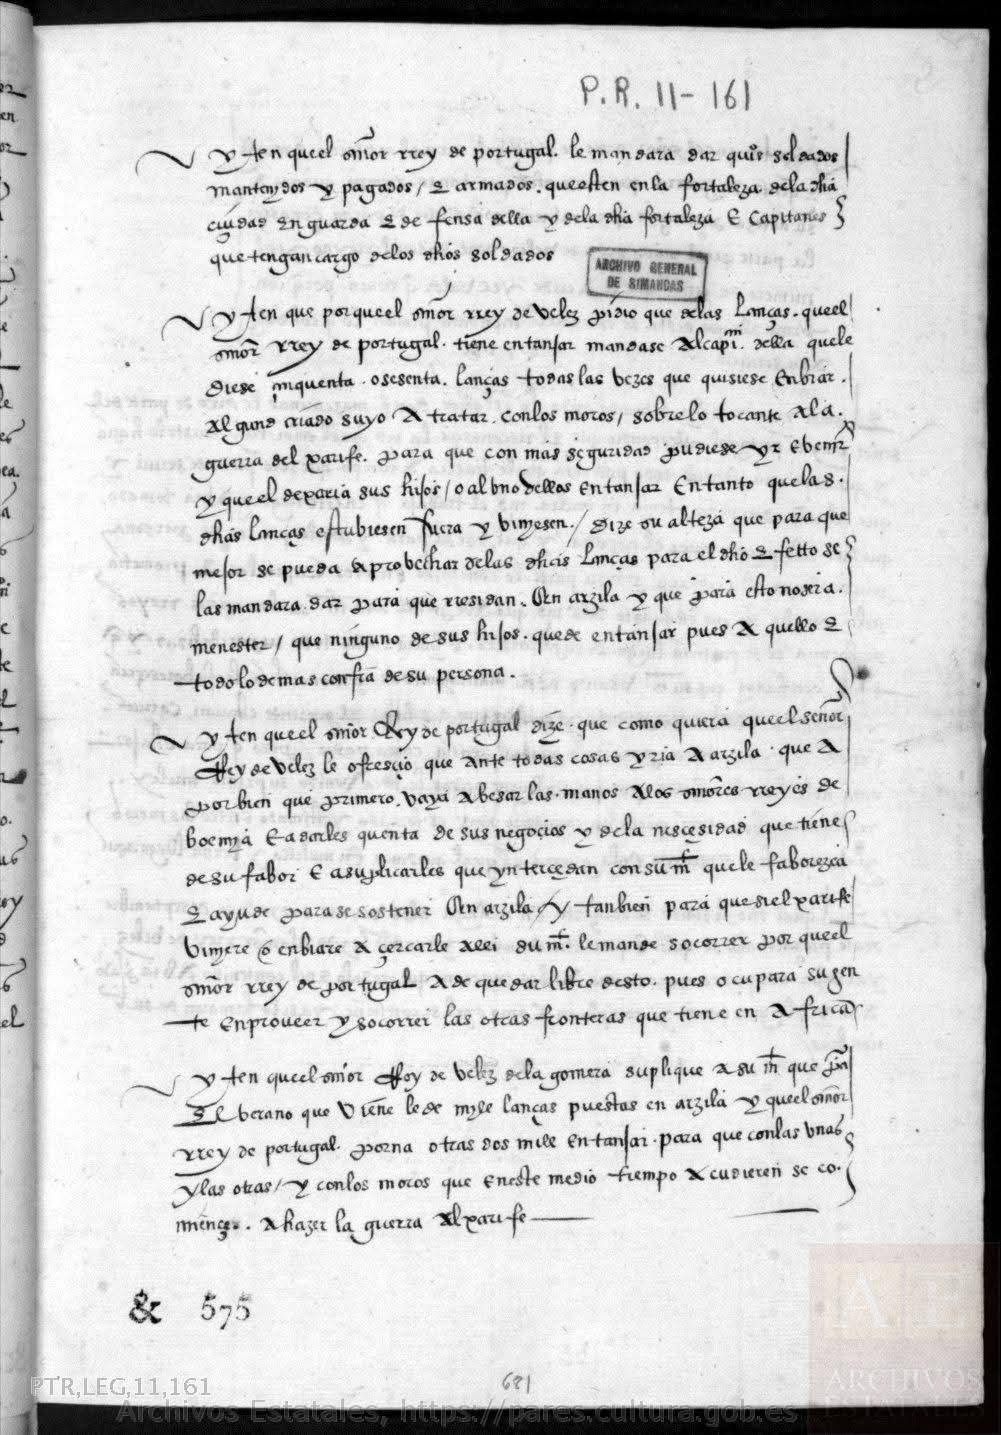 P.R. 11-161
yten que el señor rrey de portugal. le mandara dar quis soldados
mantenydos y pagados / e armados. que esten en la fortaleza dela dha
ciudad en guarda e defensa della y dela dha fortaleza e Capitanes
que tengan cargo delos dhos soldados
ARCHIVO GENERAL
DE SIMANCAS
yten que por que el señor rrey de velez pidio que delas Lanças. que el
señor rrey de portugal. tiene en tanjar mandase Al capi. della que le
diese cinquenta. o sesenta. lanças todas las vezes que quisiese Enbiar.
Algund criado suyo A tratar. con los moros / sobre lo tocante Ala.
guerra del xarife. para que con mas seguridad pudiese yr E benir
y que el dexaria sus hijos / o al vno dellos En tanjar En tanto que las.
dhas lanças estubiesen fuera y viniesen. / dize su alteza que para que
mejor se pueda aprobechar delas dhas Lanças para el dho efetto se
las mandara dar para que rresidan. En arzila y que para esto no sera.
menester / que ninguno de sus hijos. quede en tanjar pues A quello e
todo lo demas confia de su persona.
yten que el señor Rey de portugal dize. que como quiera que el señor
Rey de Velez le ofresçio que ante todas cosas yria A arzila. que A
por bien que primero. vaya A besar las. manos Alos señores rreyes de
boemya E a darles quenta de sus negoçios y dela nesçesidad que tiene
de su fabor E a suplicarles que yntercedan con su mt que le faborezca
e ayude para se sostener En arzila / y tanbien para que si el xarife
Viniere o enbiare A çercarle alli su mt. le mande socorrer por que el
señor rrey de portugal A de quedar libre desto. pues ocupara su gen
te En proueer y socorrer las otras fronteras que tiene en Africa
yten que el señor Rey de velez dela gomera suplique a su mt que pa
El verano que Viene le de myle lanças puestas en arzila y que el señor
rrey de portugal. porna otras dos mile En tanjar. para que con las vnas
y las otras / y con los moros que En este medio tiempo Acudieren se co.
mençe.. A hazer la guerra Al xarife
& 575
681
PTR,LEG,11,161
Archivos Estatales, https://pares.cultura.gob.es
AE
ARCHIVOS
ESTATALES